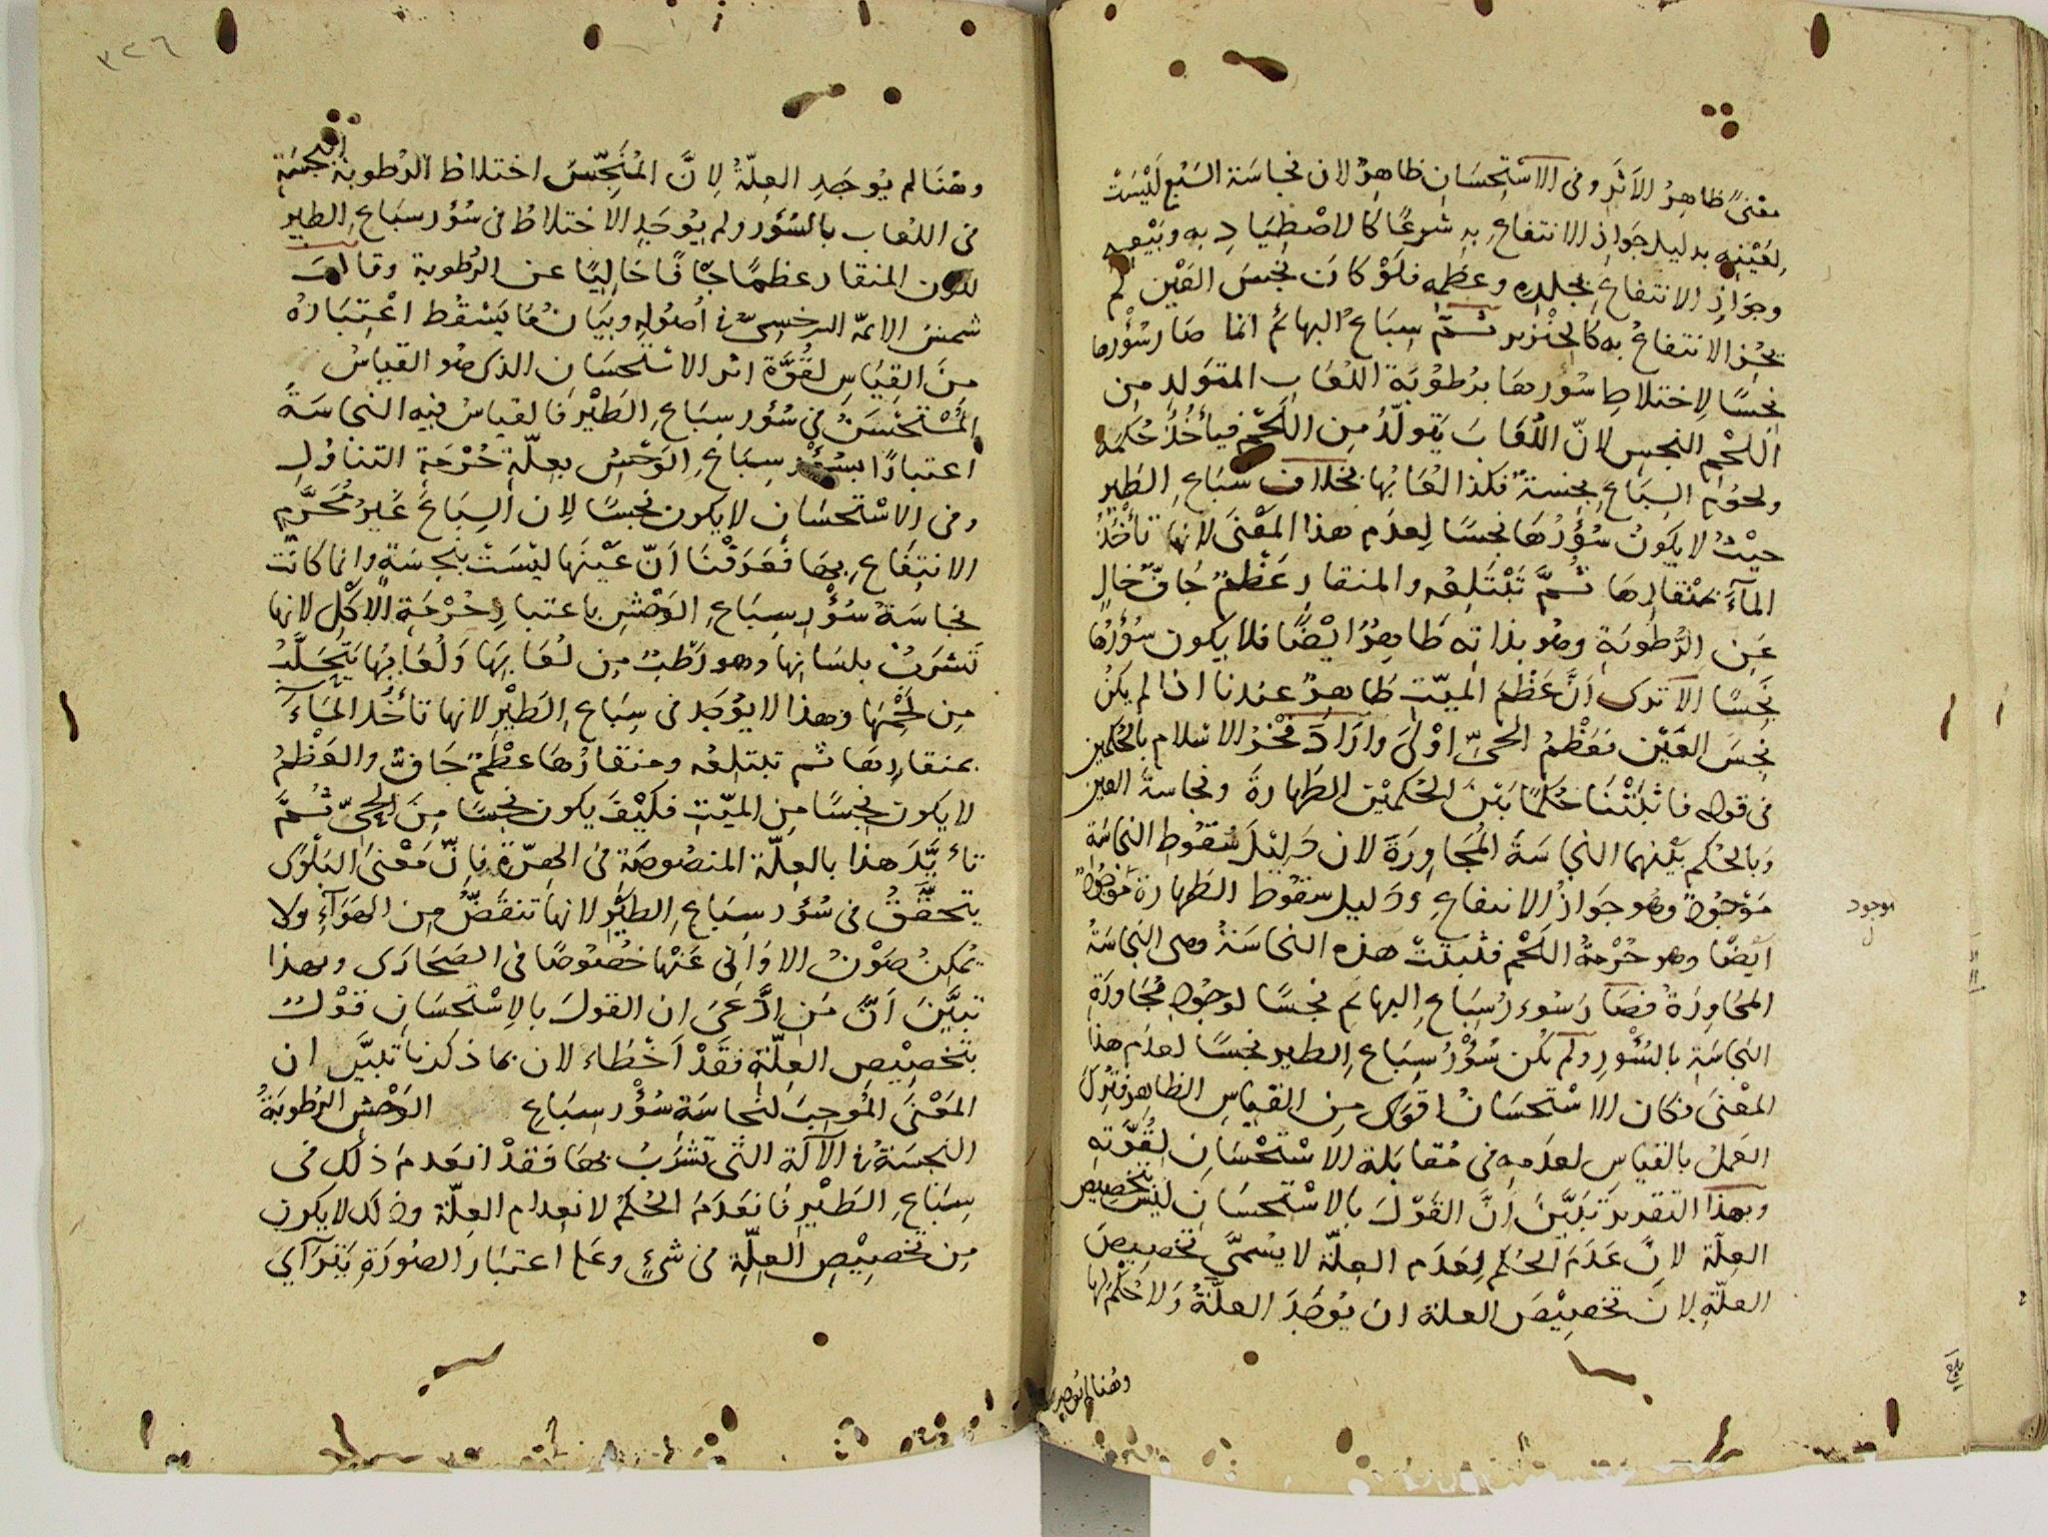 معنىً ظاهِرُ الاَثَرِ وفى الاسْتِحْسَانِ ظاهِرٌ لان نجاسَة السَبُع لَيْسَتْ
لِعَيْنِهِ بدليل جَوَازِ الانتفاعِ به شرعًا كالاصْطِيَادِ بِهِ وبَيْعِهِ
وجَوَازِ الانتفاعِ بجلدِهِ وعظمِه فلَوْ كانَ نَجِسَ العَيْنِ لم
يَجُزِ الانتفاعُ به كالخنْزير ثُمّ سِبَاعُ البهائمُ انما صَارَ سُؤْرها
نَجِسًا لِاختلاطِ سُؤْرِها برُطُوبَةِ اللُعَابِ المتوَلدِ من
اللَحْمِ النجسِ لانّ اللُعَابَ يَتَولّدُ مِن اللَحْمِ فيأخُذُ حُكمَه
ولحُومُ السِبَاعِ نجِسةٌ فكذا لُعَابُها بخلاف سِبَاعِ الطَيْرِ
حيْثُ لا يكونُ سُؤْرُهَا نجسًا لِعدَم هذا المَعْنَى لانها تأخُذُ
المآءَ بمنْقَارِهَا ثُمَّ تَبْتَلِعُه والمنقارُ عَظْمٌ جافٌ خالٍ
عَنِ الرُّطُوبَةِ وهو بذاتِه طَاهِرٌ ايْضًا فلا يكون سُؤرُها
نَجِسًا الا ترى اَنَّ عَظْمَ المَيّتِ طَاهِرٌ عندنا اذا لم يكُنْ
نجِسَ العَيْنِ فعَظْمُ الحىِّ اوْلىَ وارَادَ فخْرُ الاسْلام بالحُكمَين
فى قوله فاثْبَتْنَا حُكمًا بَيْنَ الحُكميْنِ الطَهارةَ ونجاسةَ العين
وبالحُكم بَيْنهما النجاسَةَ المُجَاوِرَةَ لان دَلِيْلَ سُقُوطِ النجاسَةِ
مَوْجُودٌ وهو جَوَازُ الانتفاعِ ودَليل سقوط الطَهارة موجودٌ
موجود
ل
ايْضًا وهو حُرْمةُ اللَحْم فثبتَتْ هذه النجاسَةُ وهى النجاسَةُ
المجَاوِرَةُ فصَارَ سُوءرُ سِبَاعِ البهائمِ نجسًا لوجُودِ مُجَاوَرَةِ
النَجاسَةِ بالسُؤْرِ ولَم يكُن سُؤْرُ سِبَاعِ الطيرِ نجسًا لعدَم هذا
المعْنَى فكان الاسْتحْسَانُ اقوَى مِن القيَاسِ الظاهِرِ فتُرِكَ
العَمَلُ بالقيَاسِ لعدَمِهِ فى مُقَابَلة الاسْتحْسَانِ لِقُوَّتِهِ
وبهذا التقريرِ تبَيَّنَ اَنَّ القَوْلَ بالاسْتحسَانِ لَيْسَ بتخصِيْصِ
العِلّة لانّ عَدَمَ الحُكم لِعَدَمِ العِلّة لا يُسمىَّ تخصِيصَ
العِلّةِ لانَ تخصِيْصَ العلة ان يُوجَدَ العِلَّةُ ولا حُكْمَ لها
وهُنا لم يُوجد
٣٢٦
وهُنَا لم يُوجَدِ العِلّةُ لِانَّ المُنَجِّسَ اختلاطُ الرُطوبة النجسَةِ
فى اللُعَابِ بالسُؤر ولم يُوجَدِ الاختلاطُ فى سُؤر سِبَاعِ الطيرِ
لكون المنقار عظمًا جافًا خاليًا عن الرُطوبة وقال
شمسُ الايمّة السرخسىّ فى اُصُولِهِ وبَيَانُ مَا يَسْقُطُ اعْتِبَارُهُ
مِنَ القِيَاسِ لقُوَّة اثر الاسْتحْسَانِ الذى هو القياسُ
المُسْتحْسَنُ فى سُؤر سِبَاعِ الطَيْرِ فالقياسُ فيه النجاسَةُ
اعتبارًا بسُؤْر سِبَاعِ الوَحْشِ بعِلّة حُرْمَةِ التناوُلِ
وفى الاسْتحْسَانِ لا يكون نجسًا لِان السِبَاعَ غيرُ مُحَرَّمِ
الانتفاعِ بها فعَرَفْنَا اَنّ عَيْنَها ليْسَتْ بنجِسَةٍ وانما كانَت
نجاسَةُ سُؤْرِ سِبَاعِ الوَحْشِ باعتبارِ حُرْمَةِ الأكْلِ لانها
تشرَبُ بلسَانِها وهو رَطْبٌ مِن لُعَابِهَا وَلُعَابُها يَتَحَلَّبُ
مِن لَحْمِها وهذا لا يُوجَد فى سِبَاعِ الطَيْرِ لانها تأخُذ المآءَ
بمنقارِها ثم تبتلِعُه ومنقارُها عظْمٌ جَافٌ والعَظْمُ
لا يكون نجِسًا من الميّتِ فكَيْفَ يكون نجِسًا مِنَ الحَىِّ ثُمَّ
تأيَّدَ هذا بالعِلّة المنصُوصَةِ فى الهِرّةِ فانّ مَعْنَى البَلْوَى
يتحَقّقُ فى سُؤر سِبَاعِ الطَيْرِ لانها تنقَضُّ مِن الهَوَآءِ ولا
يُمكِنُ صَوْنُ الاوَانى عَنْهَا خُصُوصًا فى الصَحَارَى وبهذا
تبيَّنَ اَنَّ مَنِ ادَّعَى ان القولَ بالِاسْتحْسَانِ قوْلٌ
بتَخصِيْصِ العِلّةِ فقَدْ اَخْطاء لان بما ذكرنا تبيَّن ان
المَعْنَى المُوجِبَ لنجاسَةِ سُؤْر سِبَاعِ الوَحْشِ الرُطوبَةُ
النجسَةُ فى الآلَة التى تشرَبُ بها فقدْ انعَدمَ ذلك فى
سِبَاعِ الطَيْرِ فانعَدَمَ الحُكمُ لانعِدام العِلّة وذلك لا يكون
مِن تخصِيْصِ العِلّةِ فى شىْءٍ وعَلى اعتبارِ الصُورَةِ يَتَرَآاى